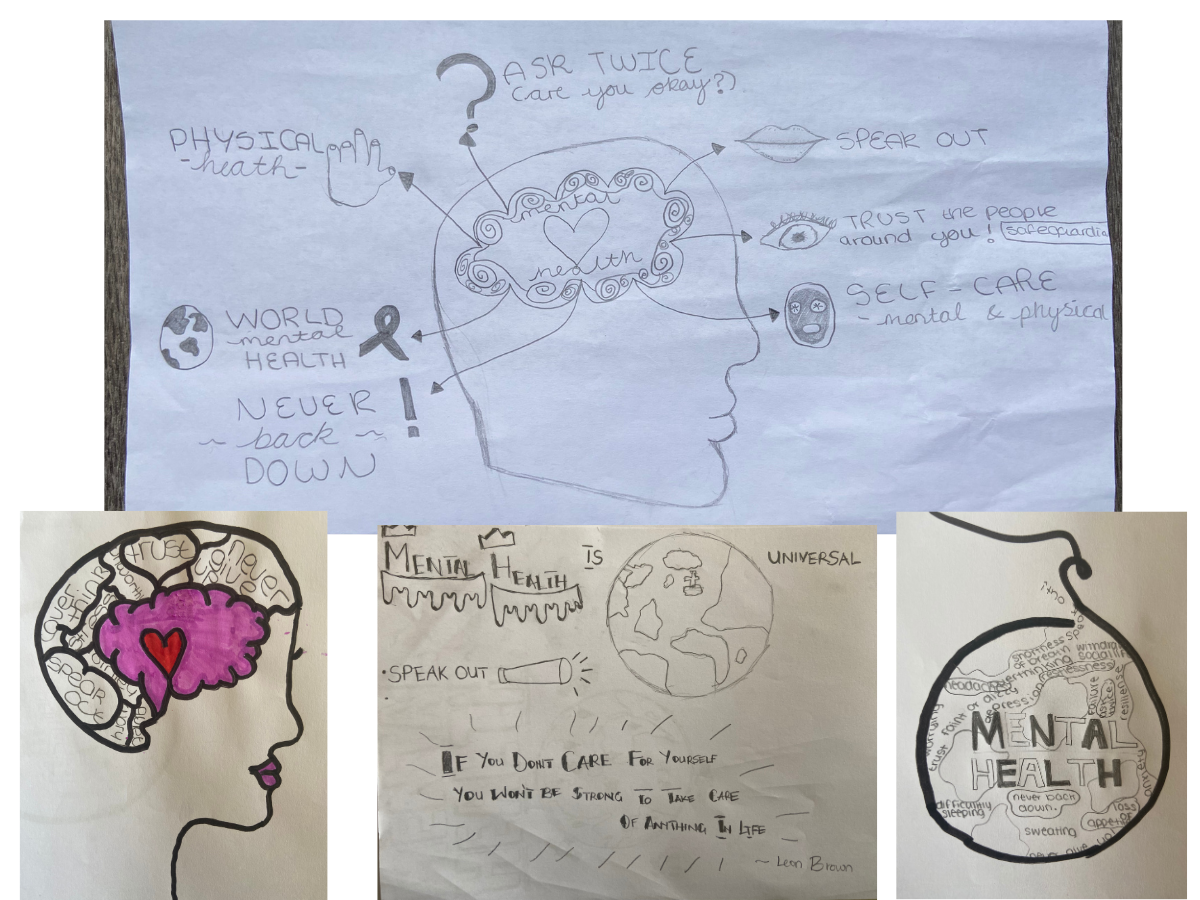 ASK TWICE
(are you okay?)
PHYSICAL
-heath-
SPEAK OUT
mental
health
TRUST the people
around you! safeguardi
SELF-CARE
- mental & physical
WORLD
mental
HEALTH
NEVER
~ back ~
DOWN
trust
never
over
think
SPEAK
OUT
MENTAL HEALTH IS UNIVERSAL
•SPEAK OUT
IF YOU DONT CARE FOR YOURSELF
YOU WON'T BE STRONG TO TAKE CARE
OF ANYTHING IN LIFE
~ Leon Brown
shortness
of breath
withdra
socially
overthinking
restlessness
headaches
depression
failure
resilience
worrying
trust
MENTAL
HEALTH
anxiety
difficultiy
sleeping
never back
down.
loss
of
appetite
sweating
never give up